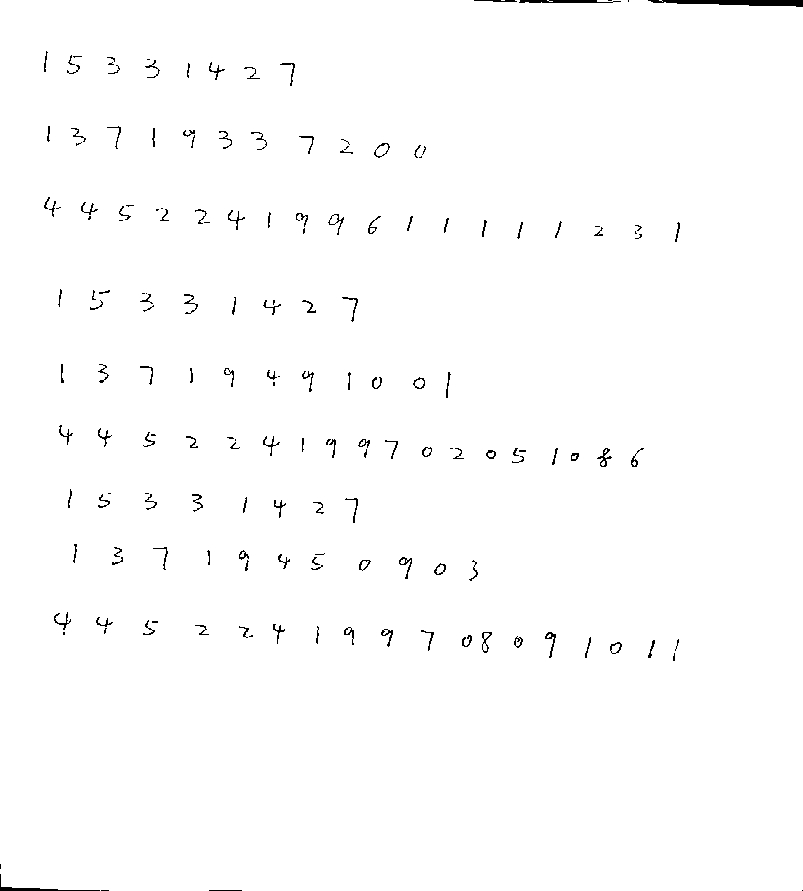 1 5 3 3 1 4 2 7
1 3 7 1 9 3 3 7 2 0 0
4 4 5 2 2 4 1 9 9 6 1 1 1 1 1 2 3 1
1 5 3 3 1 4 2 7
1 3 7 1 9 4 9 1 0 0 1
4 4 5 2 2 4 1 9 9 7 0 2 0 5 1 0 8 6
1 5 3 3 1 4 2 7
1 3 7 1 9 4 5 0 9 0 3
4 4 5 2 2 4 1 9 9 7 0 8 0 9 1 0 1 1